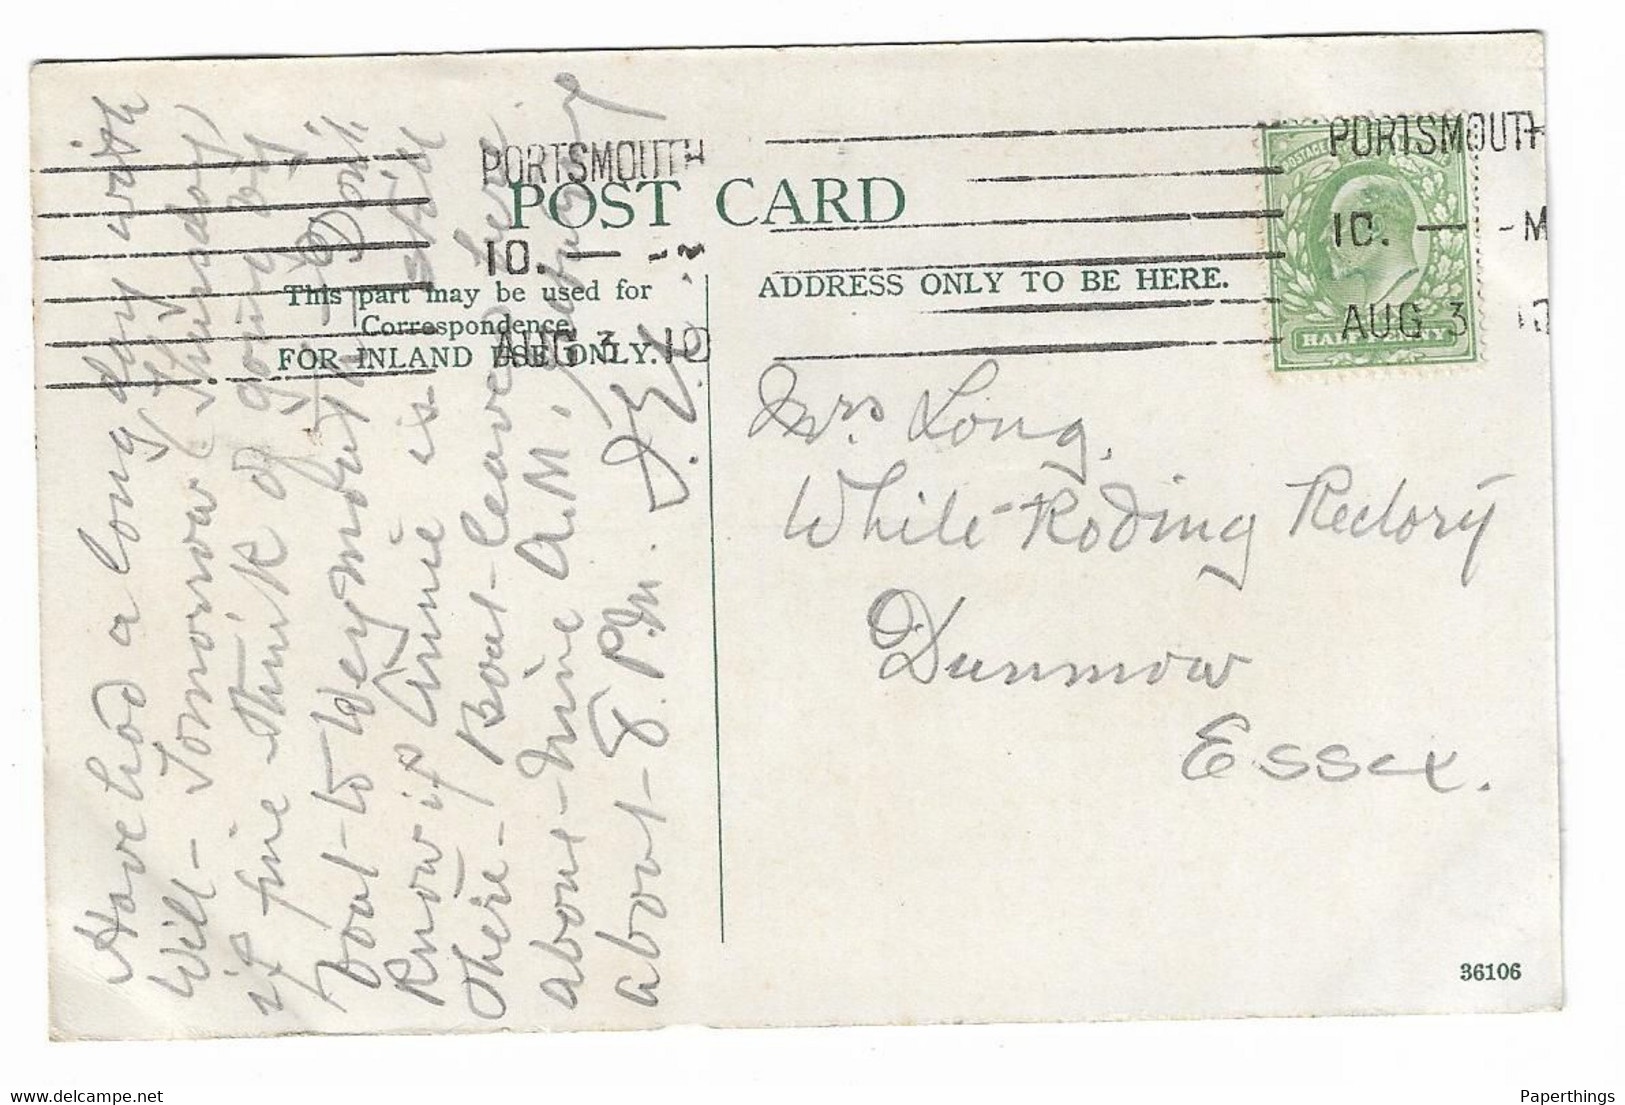 PORTSMOUTH
10. —
AUG 3 10
PORTSMOUTH
10. — - M
AUG 3
POST CARD
This part may be used for
Correspondence
FOR INLAND USE ONLY.
ADDRESS ONLY TO BE HERE.
HALFPENNY
Have had a long day with
Will - Tomorrow (Thursday)
if fine think of going by
boat - to Weymouth
Know if Annie is still
there - Boat - leaves here
about - nine A.M,
about - 8. P.M.
Mrs Long.
White-Roding Rectory
Dunmow
Essex.
36106
www.delcampe.net
Paperthings